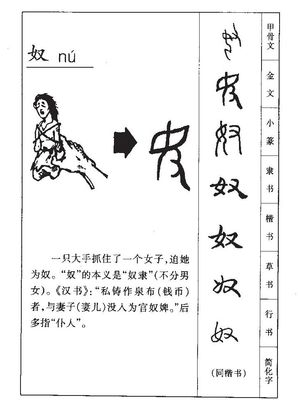 奴 nú
一只大手抓住了一个女子，迫她
为奴。“奴”的本义是“奴隶”（不分男
女）。《汉书》：“私铸作泉布（钱币）
者，与妻子（妻儿）没入为官奴婢。”后
多指“仆人”。
奴
奴
奴
奴
奴
奴
奴
（同楷书）
甲骨文
金文
小篆
隶书
楷书
草书
行书
简化字